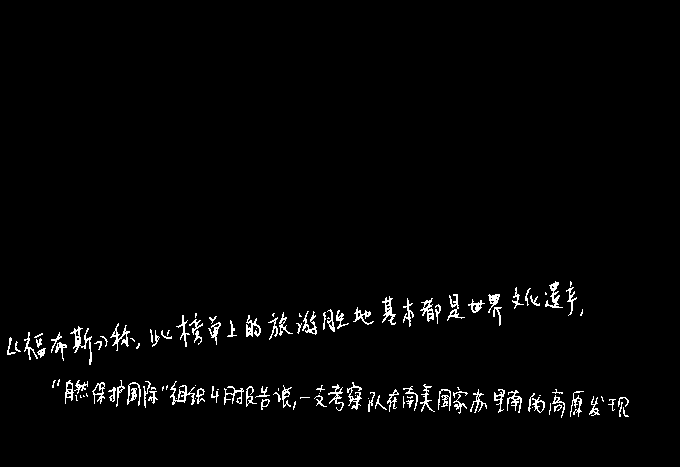 《福布斯》称,此榜单上的旅游胜地基本都是世界文化遗产,
“自然保护国际”组织4月报告说,一支考察队在南美国家苏里南的高原发现